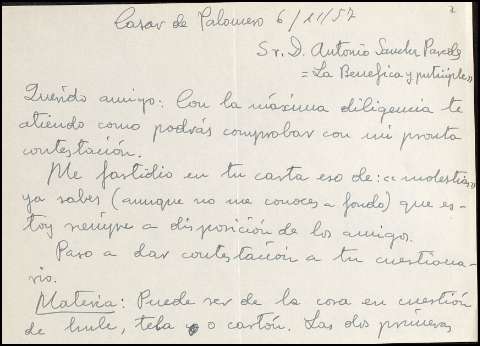 Casar de Palomero 6/11/57
Sr. D. Antonio Sánchez Paredes
= La Benefica y pitiiplesss
Querido amigo: Con la máxima diligencia te
atiendo como podrás comprobar con mi pronta
contestación.
Me fastidio en tu carta eso de: "molestias"
ya sabes (aunque no me conoces a fondo) que es-
toy siempre a disposición de los amigos.
Paso a dar contestación a tu cuestiona-
rio.
Materia: Puede ser de la cosa en cuestión
de hule, tela o cartón. Las dos primeras